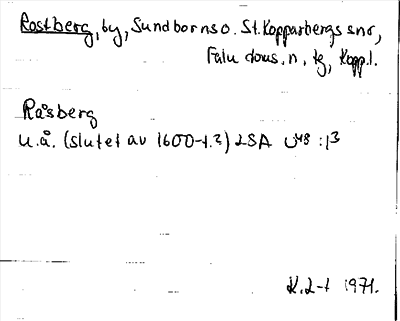 Rostberg, by, Sundborns o. St. Kopparbergs snr,
Falu doms. n, tg, Kopp.l.
Råsberg
u.å. (slutet av 1600-t.?) LSA U48 :13
K.L-t 1971.